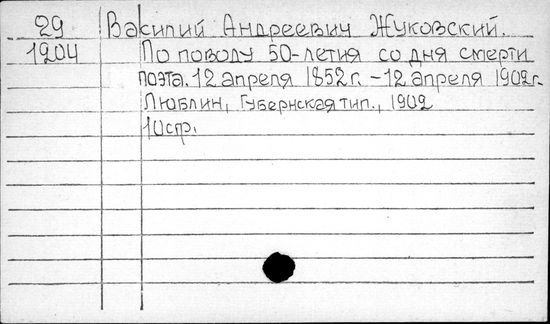 29 Василий Андреевич Жуковский.
1904 По поводу 50-летия со дня смерти
поэта. 12 апреля 1852г. -12 апреля 1902г.
Люблин, Губернская тип., 1902
10стр.